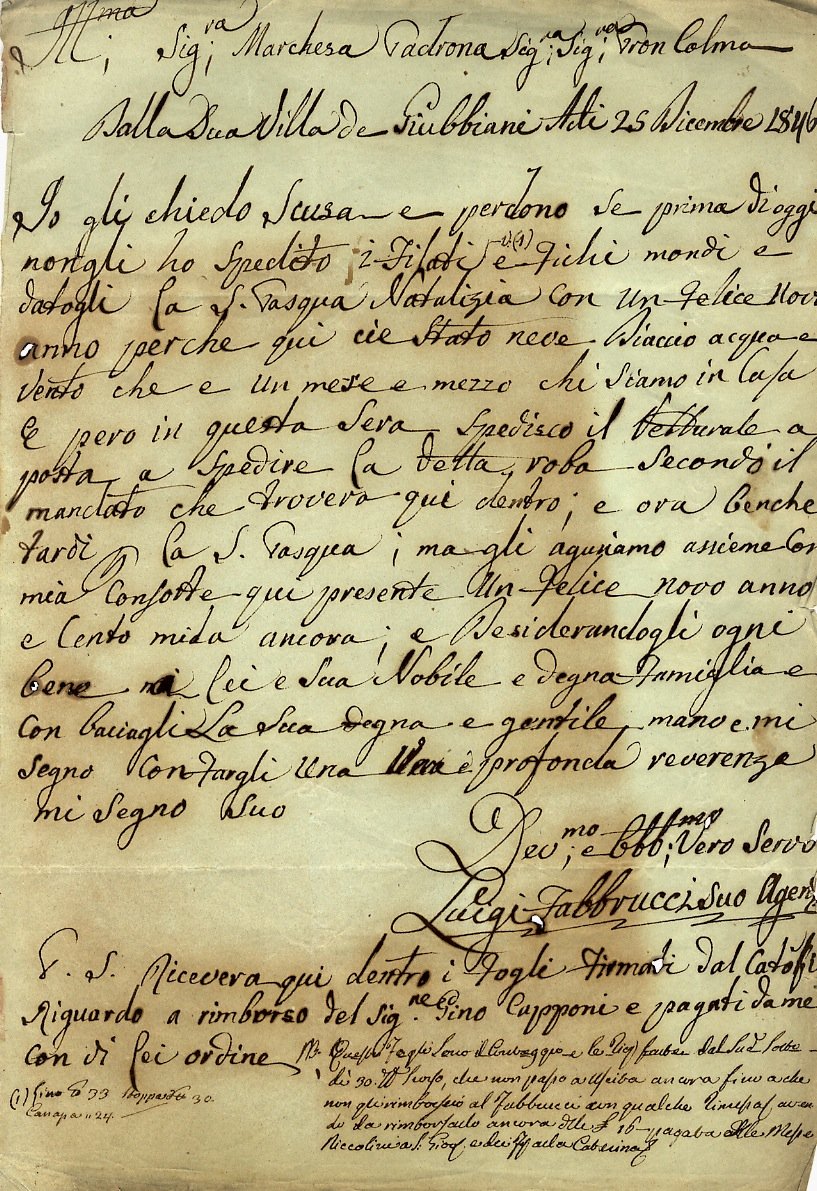 Ill;ma Sig;ra Marchesa Padrona Sig;ra Sig;ra Pron Colma
Dalla Sua Villa de Giubbiani Adi 25 Dicembre 1846
Io gli chiedo Scusa e perdono se prima di oggi
non gli ho Spedito i Filati (1) e Fichi mondi e
datogli la S. Pasqua Natalizia con un Felice Novo
anno perche qui cie Stato neve Diaccio acqua e
Vento che e un mese e mezzo chi Siamo in Casa
E pero in questa Sera Spedisco il Vetturale a
posta a Spedire la detta roba Secondo il
mandato che trovera qui dentro; e ora benche
tardi la S. Pasqua; ma gli aguriamo assieme con
mia Consorte qui presente Un Felice novo anno
e Cento mila ancora; e Desiderandogli ogni
bene a lei e Sua Nobile e degna Famiglia e
Con baciagli La Sua degna e gentile mano e mi
Segno Con Fargli una Vera e profonda reverenza
mi Segno Suo
Dev;mo e Obb;mo Vero Servo
Luigi Fabbrucci Suo Agen
P. S. Ricevera qui dentro i Fogli Firmati dal
Riguardo a rimborso del Sig.ne Gino Capponi e pagati da me
Con di lei ordine
Questi Fogli Sono il Conteggio e le dal
di 30. che non passo a ancora fino a che
non gli rimborserò al Fabbrucci con qualche
da rimborsarlo ancora delle £ 16 pagava alle Messe
Niccolini a S. e di Caterina
(1) Lino £ 33 Stoppa £ 30.
Canapa " 24.